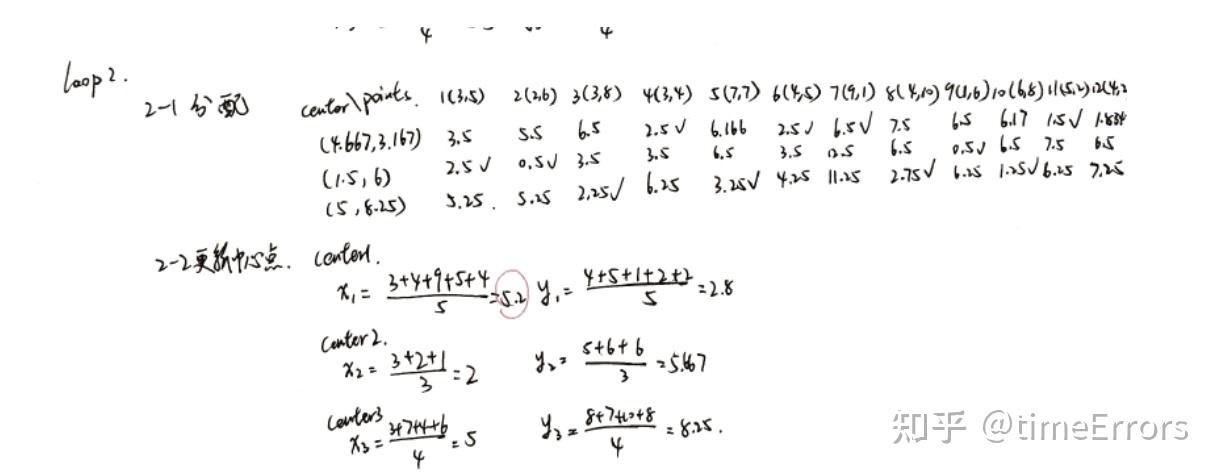 4 4
loop2.
2-1 分配 center\points. 1(3,5) 2(2,6) 3(3,8) 4(3,4) 5(7,7) 6(4,5) 7(9,1) 8(4,10) 9(1,6) 10(6,8) 11(5,2) 12(4,2
(4.667,3.167) 3.5 5.5 6.5 2.5✓ 6.166 2.5✓ 6.5✓ 7.5 6.5 6.17 1.5✓ 1.834
(1.5,6) 2.5✓ 0.5✓ 3.5 3.5 6.5 3.5 12.5 6.5 0.5✓ 6.5 7.5 6.5
(5,8.25) 5.25. 5.25 2.25✓ 6.25 3.25✓ 4.25 11.25 2.75✓ 6.25 1.25✓ 6.25 7.25
2-2更新中心点. center1.
x₁= 3+4+9+5+4 / 5 =5.2 y₁= 4+5+1+2+2 / 5 =2.8
center2.
x₂= 3+2+1 / 3 =2 y₂= 5+6+6 / 3 =5.667
center3
x₃= 3+7+4+6 / 4 =5 y₃= 8+7+10+8 / 4 =8.25.
知乎 @timeErrors